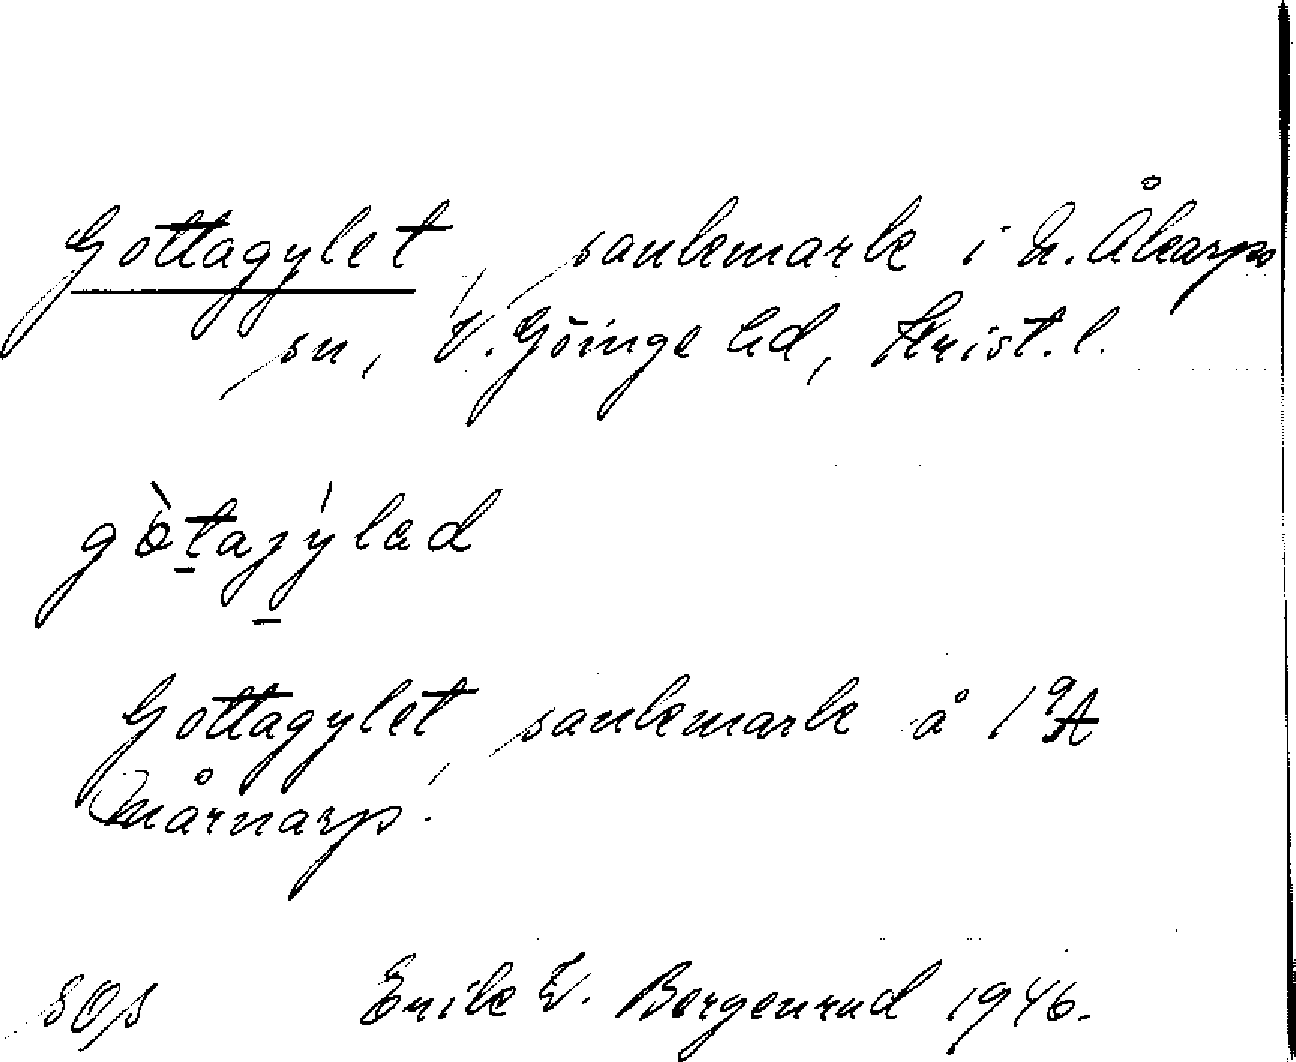 Gottagylet, sankmark i N. Åkarps
sn, V. Göinge hd, Krist. l.
gòtajýlad
Gottagylet, sankmark å 1 9/A
Mårnarp.
Erik W. Bergenrud 1946.